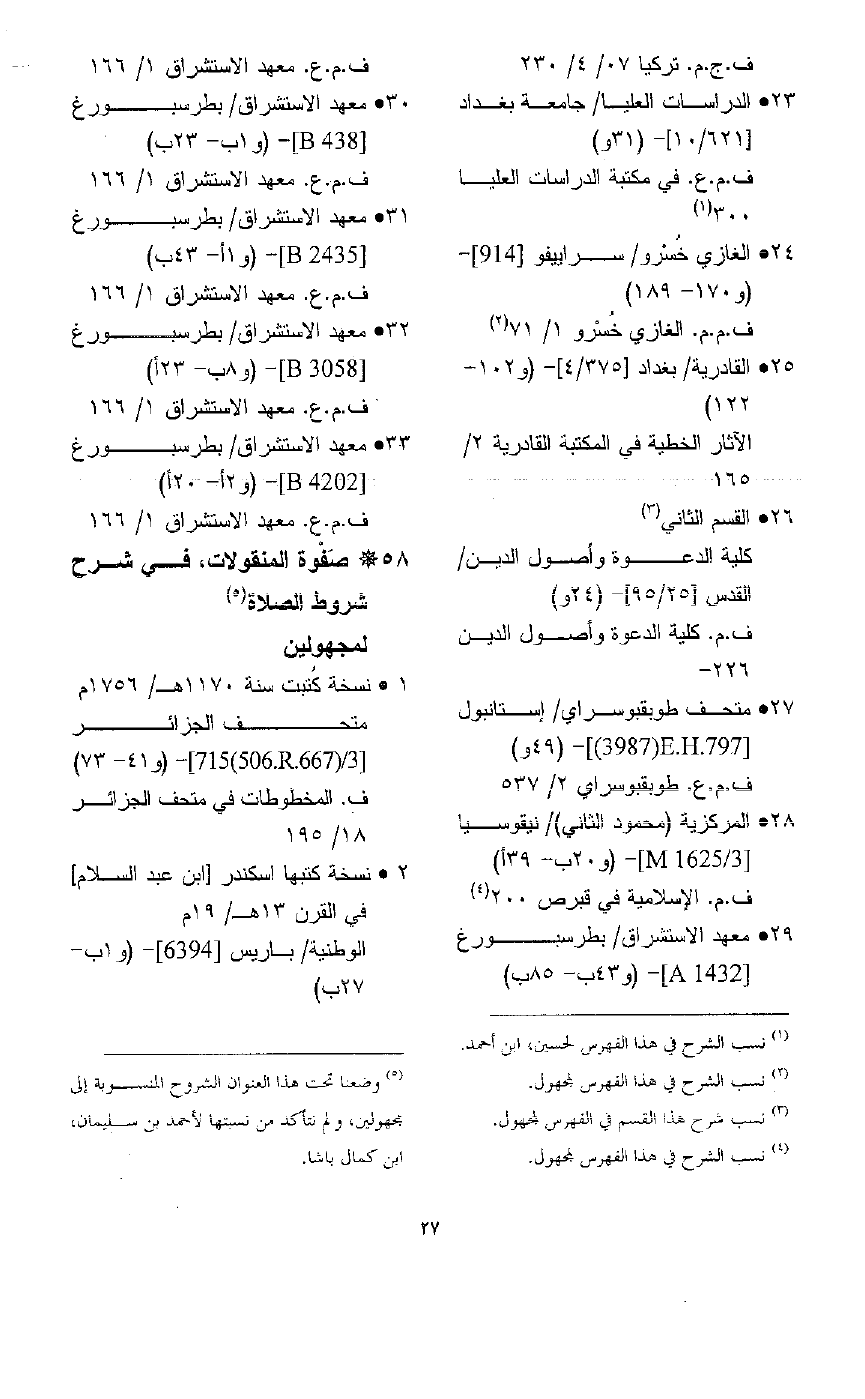 ف.ج.م. تركيا ٠٧/ ٤/ ٢٣٠
٢٣• الدراسات العليا/ جامعة بغداد
[١٠/٦٢١]– (٣١و)
ف.م.ع. في مكتبة الدراسات العليا
٣٠٠(١)
٢٤• الغازي خُسْرو/ سراييفو [914]–
(و١٧٠– ١٨٩)
ف.م.م. الغازي خُسْرو ١/ ٧١(٢)
٢٥• القادرية/ بغداد [٤/٣٧٥]– (و١٠٢–
١٢٢)
الآثار الخطية في المكتبة القادرية ٢/
١٦٥
٢٦• القسم الثاني(٣)
كلية الدعوة وأصول الدين/
القدس [٩٥/٢٥]– (٢٤و)
ف.م. كلية الدعوة وأصول الدين
٢٢٦–
٢٧• متحف طوبقبوسراي/ إستانبول
[(3987)E.H.797]– (٤٩و)
ف.م.ع. طوبقبوسراي ٢/ ٥٣٧
٢٨• المركزية (محمود الثاني)/ نيقوسيا
[M 1625/3]– (و٢٠ب– ٣٩أ)
ف.م. الإسلامية في قبرص ٢٠٠(٤)
٢٩• معهد الاستشراق/ بطرسبورغ
[A 1432]– (و٤٣ب– ٨٥ب)
(١) نسب الشرح في هذا الفهرس لحسين، ابن أحمد.
(٢) نسب الشرح في هذا الفهرس لمجهول.
(٣) نسب شرح هذا القسم في الفهرس لمجهول.
(٤) نسب الشرح في هذا الفهرس لمجهول.
ف.م.ع. معهد الاستشراق ١/ ١٦٦
٣٠• معهد الاستشراق/ بطرسبورغ
[B 438]– (و١ب– ٢٣ب)
ف.م.ع. معهد الاستشراق ١/ ١٦٦
٣١• معهد الاستشراق/ بطرسبورغ
[B 2435]– (و١أ– ٤٣ب)
ف.م.ع. معهد الاستشراق ١/ ١٦٦
٣٢• معهد الاستشراق/ بطرسبورغ
[B 3058]– (و٨ب– ٢٣أ)
ف.م.ع. معهد الاستشراق ١/ ١٦٦
٣٣• معهد الاستشراق/ بطرسبورغ
[B 4202]– (و٢أ– ٢٠أ)
ف.م.ع. معهد الاستشراق ١/ ١٦٦
٥٨* صَفْوة المنقولات، في شرح
شروط الصلاة(٥)
لمجهولين
١ • نسخة كُتبت سنة ١١٧٠هـ/ ١٧٥٦م
متحف الجزائر
[715(506.R.667)/3]– (و٤١– ٧٣)
ف. المخطوطات في متحف الجزائر
١٨/ ١٩٥
٢ • نسخة كتبها اسكندر [ابن عبد السلام]
في القرن ١٣هـ/ ١٩م
الوطنية/ باريس [6394]– (و١ب–
٢٧ب)
(٥) وضعنا تحت هذا العنوان الشروح المنسوبة إلى
مجهولين، ولم نتأكد من نسبتها لأحمد بن سليمان،
ابن كمال باشا.
٢٧